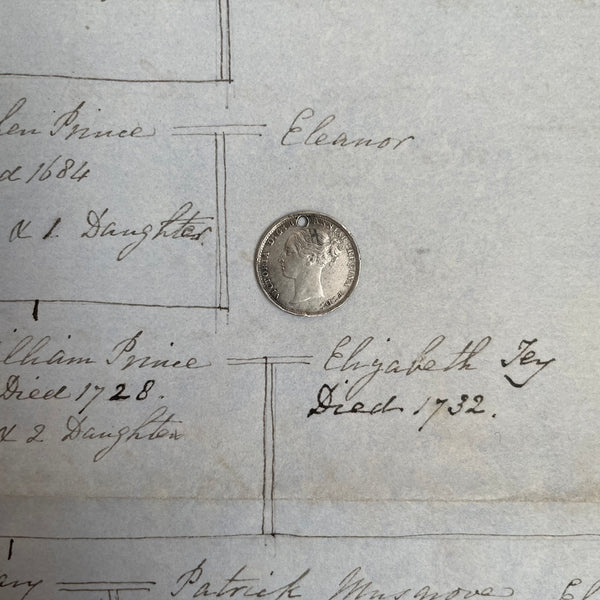 len Prince Eleanor
d 1684
& 1. Daughter
VICTORIA DEI GRATIA BRITANNIAR: REG: F:D:
illiam Prince Elizabeth Tey
Died 1728. Died 1732.
& 2 Daughter
ary Patrick Musgrove El